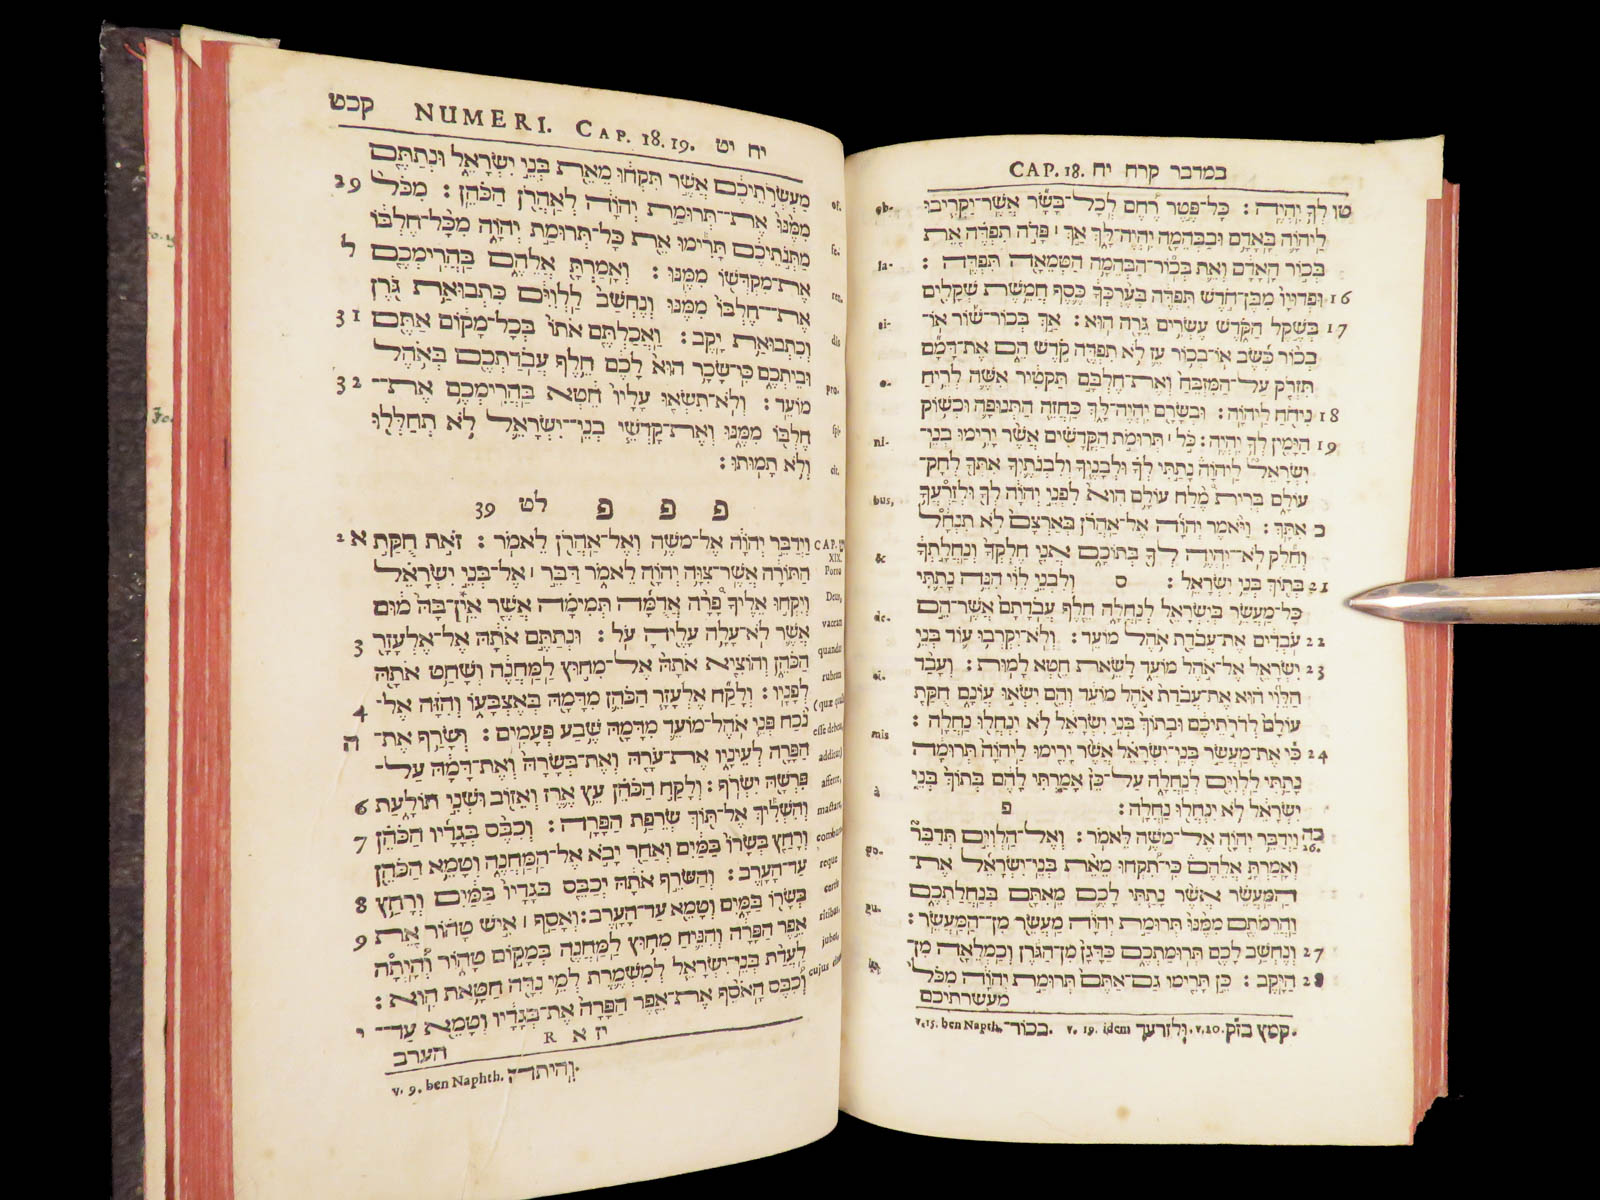 במדבר קרח יח CAP. 18.
טו לְךָ יִהְיֶה׃ כָּל־פֶּטֶר רֶחֶם לְכָל־בָּשָׂר אֲשֶׁר־יַקְרִיבוּ
לַיהוָה בָּאָדָם וּבַבְּהֵמָה יִהְיֶה־לָּךְ אַךְ ׀ פָּדֹה תִפְדֶּה אֵת
בְּכוֹר הָאָדָם וְאֵת בְּכוֹר־הַבְּהֵמָה הַטְּמֵאָה תִּפְדֶּה׃
16 וּפְדוּיָו מִבֶּן־חֹדֶשׁ תִּפְדֶּה בְּעֶרְכְּךָ כֶּסֶף חֲמֵשֶׁת שְׁקָלִים
17 בְּשֶׁקֶל הַקֹּדֶשׁ עֶשְׂרִים גֵּרָה הוּא׃ אַךְ בְּכוֹר־שׁוֹר אוֹ־
בְכוֹר כֶּשֶׂב אוֹ־בְכוֹר עֵז לֹא תִפְדֶּה קֹדֶשׁ הֵם אֶת־דָּמָם
תִּזְרֹק עַל־הַמִּזְבֵּחַ וְאֶת־חֶלְבָּם תַּקְטִיר אִשֶּׁה לְרֵיחַ
18 נִיחֹחַ לַיהוָה׃ וּבְשָׂרָם יִהְיֶה־לָּךְ כַּחֲזֵה הַתְּנוּפָה וּכְשׁוֹק
19 הַיָּמִין לְךָ יִהְיֶה׃ כֹּל ׀ תְּרוּמֹת הַקֳּדָשִׁים אֲשֶׁר יָרִימוּ בְנֵי־
יִשְׂרָאֵל לַיהוָה נָתַתִּי לְךָ וּלְבָנֶיךָ וְלִבְנֹתֶיךָ אִתְּךָ לְחָק־
עוֹלָם בְּרִית מֶלַח עוֹלָם הִוא לִפְנֵי יְהוָה לְךָ וּלְזַרְעֲךָ
כ אִתָּךְ׃ וַיֹּאמֶר יְהוָה אֶל־אַהֲרֹן בְּאַרְצָם לֹא תִנְחָל
וְחֵלֶק לֹא־יִהְיֶה לְךָ בְּתוֹכָם אֲנִי חֶלְקְךָ וְנַחֲלָתְךָ
21 בְּתוֹךְ בְּנֵי יִשְׂרָאֵל׃ ס וְלִבְנֵי לֵוִי הִנֵּה נָתַתִּי
כָּל־מַעֲשֵׂר בְּיִשְׂרָאֵל לְנַחֲלָה חֵלֶף עֲבֹדָתָם אֲשֶׁר־הֵם
22 עֹבְדִים אֶת־עֲבֹדַת אֹהֶל מוֹעֵד׃ וְלֹא־יִקְרְבוּ עוֹד בְּנֵי
23 יִשְׂרָאֵל אֶל־אֹהֶל מוֹעֵד לָשֵׂאת חֵטְא לָמוּת׃ וְעָבַד
הַלֵּוִי הוּא אֶת־עֲבֹדַת אֹהֶל מוֹעֵד וְהֵם יִשְׂאוּ עֲוֹנָם חֻקַּת
עוֹלָם לְדֹרֹתֵיכֶם וּבְתוֹךְ בְּנֵי יִשְׂרָאֵל לֹא יִנְחֲלוּ נַחֲלָה׃
24 כִּי אֶת־מַעְשַׂר בְּנֵי־יִשְׂרָאֵל אֲשֶׁר יָרִימוּ לַיהוָה תְּרוּמָה
נָתַתִּי לַלְוִיִּם לְנַחֲלָה עַל־כֵּן אָמַרְתִּי לָהֶם בְּתוֹךְ בְּנֵי
יִשְׂרָאֵל לֹא יִנְחֲלוּ נַחֲלָה׃ פ
כה 26. וַיְדַבֵּר יְהוָה אֶל־מֹשֶׁה לֵּאמֹר׃ וְאֶל־הַלְוִיִּם תְּדַבֵּר
וְאָמַרְתָּ אֲלֵהֶם כִּי־תִקְחוּ מֵאֵת בְּנֵי־יִשְׂרָאֵל אֶת־
הַמַּעֲשֵׂר אֲשֶׁר נָתַתִּי לָכֶם מֵאִתָּם בְּנַחֲלַתְכֶם
וַהֲרֵמֹתֶם מִמֶּנּוּ תְּרוּמַת יְהוָה מַעֲשֵׂר מִן־הַמַּעֲשֵׂר׃
27 וְנֶחְשַׁב לָכֶם תְּרוּמַתְכֶם כַּדָּגָן מִן־הַגֹּרֶן וְכַמְלֵאָה מִן־
28 הַיָּקֶב׃ כֵּן תָּרִימוּ גַם־אַתֶּם תְּרוּמַת יְהוָה מִכֹּל
מעשרתיכם
v. 15. ben Napth. בכור־ v. 19. idem וּלזרעך. v. 20. קמץ בז״ק.
ob.
la-
si-
o.
ni-
bus,
&
de-
ei.
mis
à
po-
pu-
קכט NUMERI. CAP. 18. 19. יח יט
מַעְשְׂרֹתֵיכֶם אֲשֶׁר תִּקְחוּ מֵאֵת בְּנֵי יִשְׂרָאֵל וּנְתַתֶּם
29 מִמֶּנּוּ אֶת־תְּרוּמַת יְהוָה לְאַהֲרֹן הַכֹּהֵן׃ מִכֹּל
מַתְּנֹתֵיכֶם תָּרִימוּ אֵת כָּל־תְּרוּמַת יְהוָה מִכָּל־חֶלְבּוֹ
ל אֶת־מִקְדְּשׁוֹ מִמֶּנּוּ׃ וְאָמַרְתָּ אֲלֵהֶם בַּהֲרִימְכֶם
אֶת־חֶלְבּוֹ מִמֶּנּוּ וְנֶחְשַׁב לַלְוִיִּם כִּתְבוּאַת גֹּרֶן
31 וְכִתְבוּאַת יָקֶב׃ וַאֲכַלְתֶּם אֹתוֹ בְּכָל־מָקוֹם אַתֶּם
וּבֵיתְכֶם כִּי־שָׂכָר הוּא לָכֶם חֵלֶף עֲבֹדַתְכֶם בְּאֹהֶל
32 מוֹעֵד׃ וְלֹא־תִשְׂאוּ עָלָיו חֵטְא בַּהֲרִימְכֶם אֶת־
חֶלְבּוֹ מִמֶּנּוּ וְאֶת־קָדְשֵׁי בְנֵי־יִשְׂרָאֵל לֹא תְחַלְּלוּ
וְלֹא תָמוּתוּ׃
פ פ פ לט 39
2 א וַיְדַבֵּר יְהוָה אֶל־מֹשֶׁה וְאֶל־אַהֲרֹן לֵאמֹר׃ זֹאת חֻקַּת
הַתּוֹרָה אֲשֶׁר־צִוָּה יְהוָה לֵאמֹר דַּבֵּר ׀ אֶל־בְּנֵי יִשְׂרָאֵל
וְיִקְחוּ אֵלֶיךָ פָרָה אֲדֻמָּה תְּמִימָה אֲשֶׁר אֵין־בָּהּ מוּם
3 אֲשֶׁר לֹא־עָלָה עָלֶיהָ עֹל׃ וּנְתַתֶּם אֹתָהּ אֶל־אֶלְעָזָר
הַכֹּהֵן וְהוֹצִיא אֹתָהּ אֶל־מִחוּץ לַמַּחֲנֶה וְשָׁחַט אֹתָהּ
4 לְפָנָיו׃ וְלָקַח אֶלְעָזָר הַכֹּהֵן מִדָּמָהּ בְּאֶצְבָּעוֹ וְהִזָּה אֶל־
ה נֹכַח פְּנֵי אֹהֶל־מוֹעֵד מִדָּמָהּ שֶׁבַע פְּעָמִים׃ וְשָׂרַף אֶת־
הַפָּרָה לְעֵינָיו אֶת־עֹרָהּ וְאֶת־בְּשָׂרָהּ וְאֶת־דָּמָהּ עַל־
6 פִּרְשָׁהּ יִשְׂרֹף׃ וְלָקַח הַכֹּהֵן עֵץ אֶרֶז וְאֵזוֹב וּשְׁנִי תוֹלָעַת
7 וְהִשְׁלִיךְ אֶל־תּוֹךְ שְׂרֵפַת הַפָּרָה׃ וְכִבֶּס בְּגָדָיו הַכֹּהֵן
וְרָחַץ בְּשָׂרוֹ בַּמַּיִם וְאַחַר יָבֹא אֶל־הַמַּחֲנֶה וְטָמֵא הַכֹּהֵן
8 עַד־הָעָרֶב׃ וְהַשֹּׂרֵף אֹתָהּ יְכַבֵּס בְּגָדָיו בַּמַּיִם וְרָחַץ
9 בְּשָׂרוֹ בַּמָּיִם וְטָמֵא עַד־הָעָרֶב׃ וְאָסַף ׀ אִישׁ טָהוֹר אֵת
אֵפֶר הַפָּרָה וְהִנִּיחַ מִחוּץ לַמַּחֲנֶה בְּמָקוֹם טָהוֹר וְהָיְתָה
לַעֲדַת בְּנֵי־יִשְׂרָאֵל לְמִשְׁמֶרֶת לְמֵי נִדָּה חַטָּאת הִוא׃
י וְכִבֶּס הָאֹסֵף אֶת־אֵפֶר הַפָּרָה אֶת־בְּגָדָיו וְטָמֵא עַד־
R יז א
הערב
v. 9. ben Naphth. וְהיתה.
of.
fe.
ren.
dis
pro.
dit.
CAP. יט
XIX.
Porro
Deus,
vaccam
quandam
rubem
(quæ
esse debeat,
additur)
afferre,
mactare,
combur
reque
certis
ritibus,
jubet,
cujus